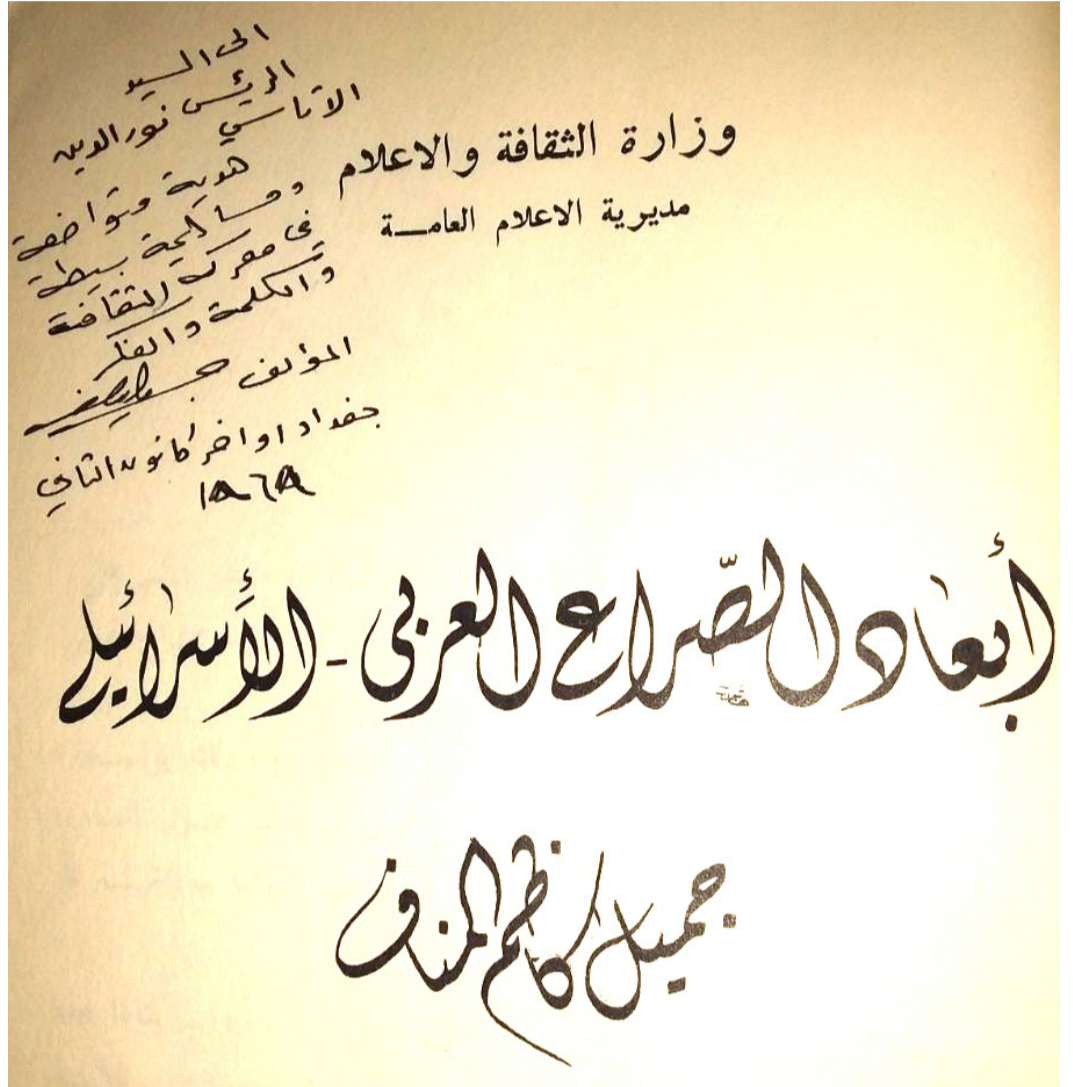 الى السيد
الرئيس نور الدين
الاتاسي
هدية متواضعة
ومساهمة بسيطة
في معركة الثقافة
والكلمة والفكر
المؤلف
بغداد اواخر كانون الثاني
١٩٦٩
وزارة الثقافة والاعلام
مديرية الاعلام العامـــة
أبعاد الصّراع العربى - الأسرائيلي
جميل كاظم المناف